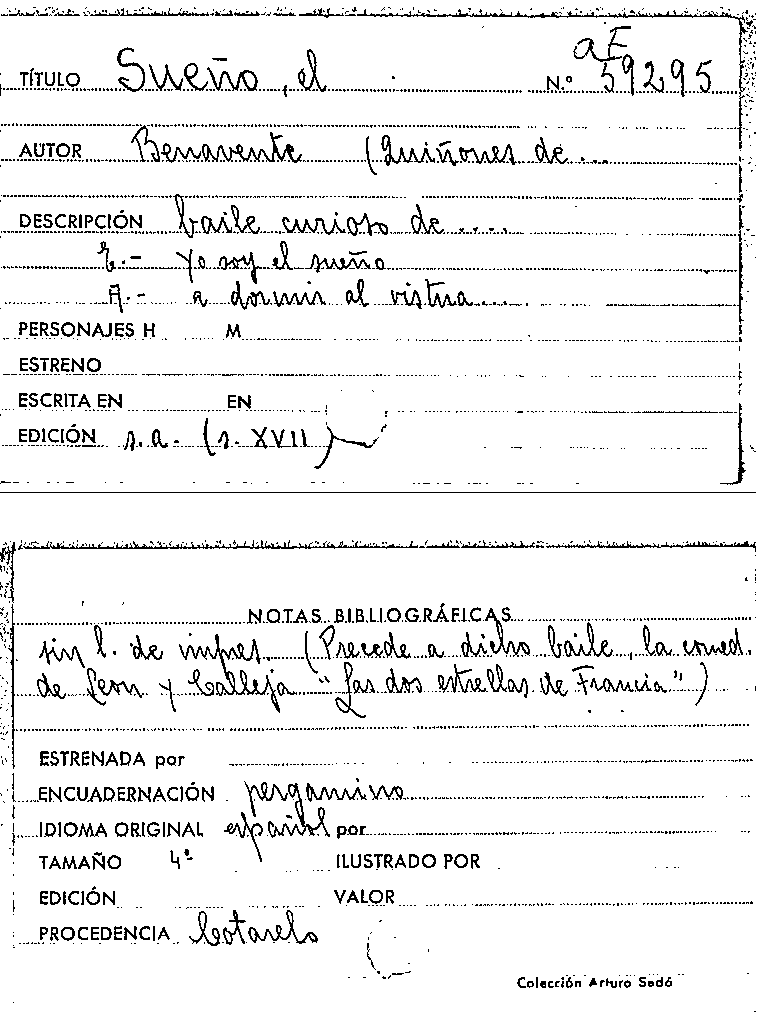 aE
TÍTULO Sueño, el N.º 59295
AUTOR Benavente (Quiñones de...
DESCRIPCIÓN baile curioso de ....
E.- Yo soy el sueño
A.- a dormir al vistua....
PERSONAJES H M
ESTRENO
ESCRITA EN EN
EDICIÓN s.a. (s. XVII)
NOTAS BIBLIOGRÁFICAS
sin l. de impres. (Precede a dicho baile, la comed.
de Leon y Calleja "Las dos estrellas de Francia")
ESTRENADA por
ENCUADERNACIÓN pergamino
IDIOMA ORIGINAL español por
TAMAÑO 4º ILUSTRADO POR
EDICIÓN VALOR
PROCEDENCIA Cotarelo
Colección Arturo Sedó